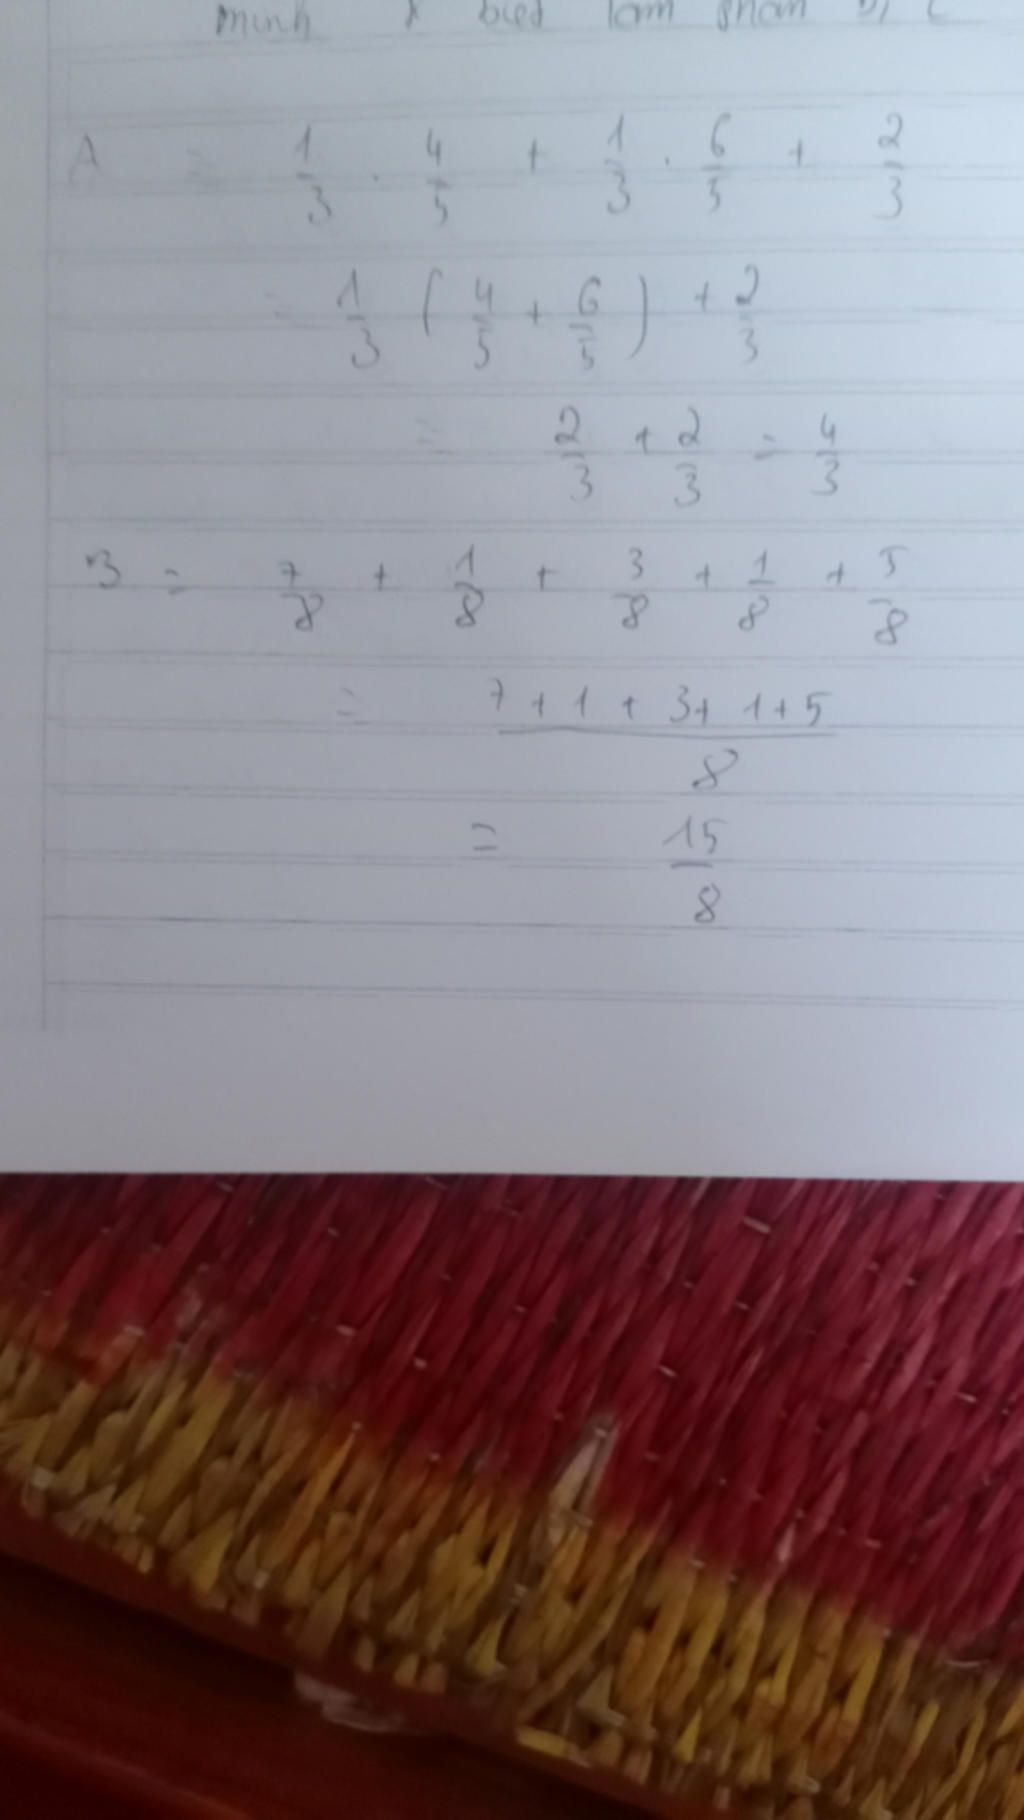 minh k biet lam phan b, c
A = 1/3 . 4/5 + 1/3 . 6/5 + 2/3
= 1/3 (4/5 + 6/5) + 2/3
= 2/3 + 2/3 = 4/3
B = 7/8 + 1/8 + 3/8 + 1/8 + 5/8
= (7 + 1 + 3 + 1 + 5)/8
= 15/8